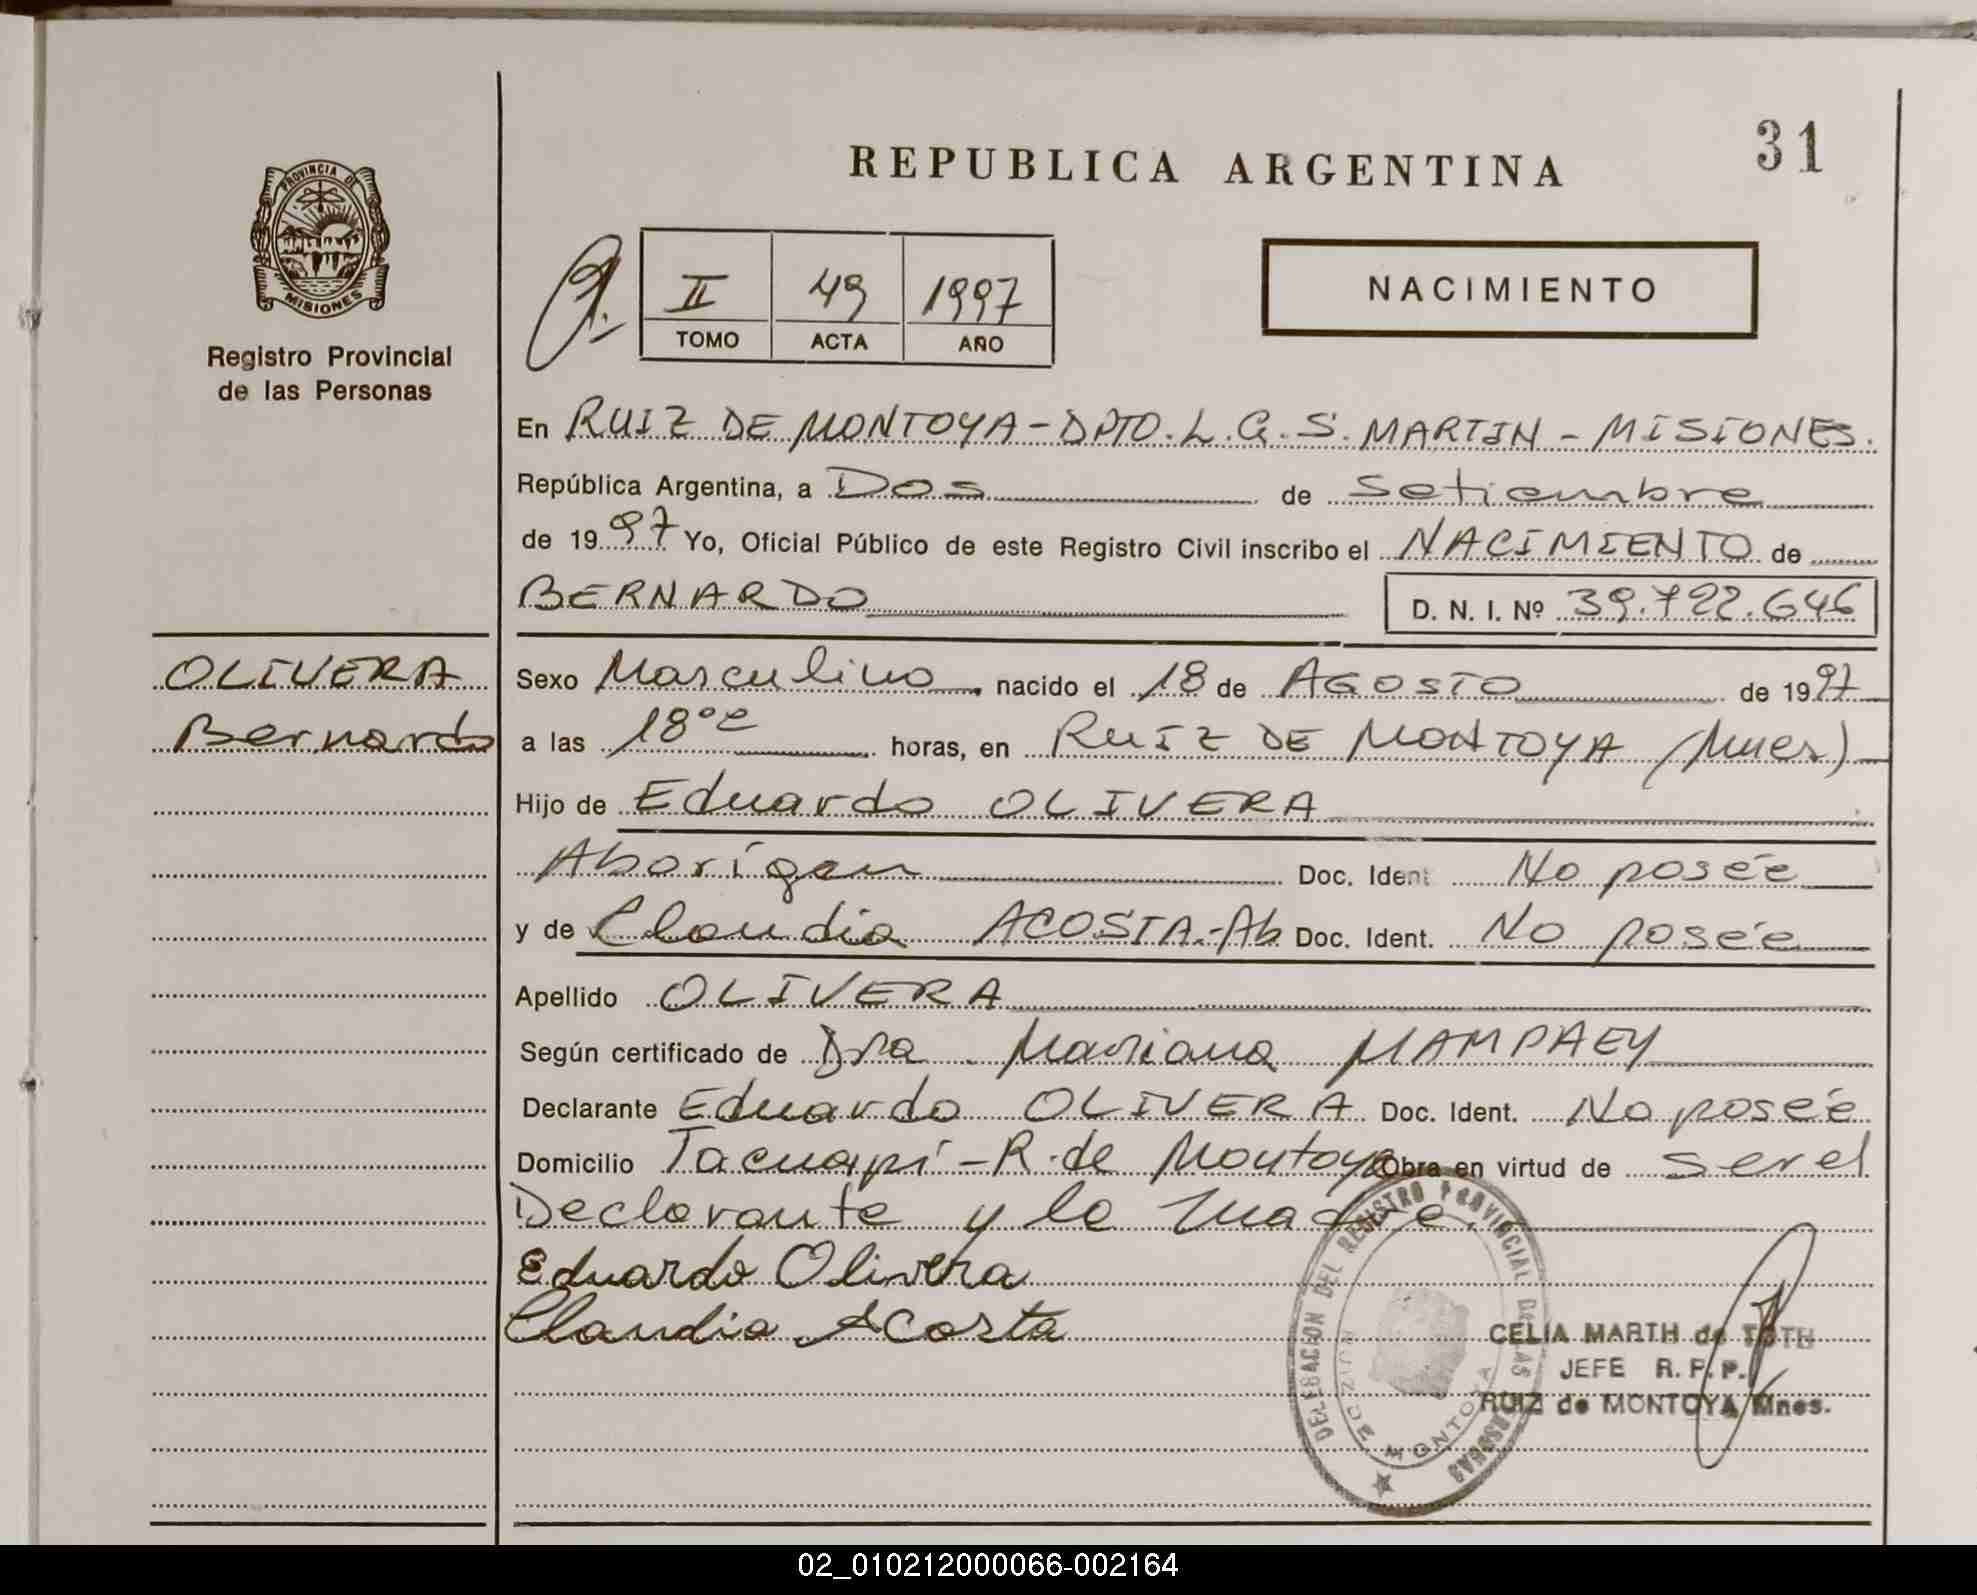 REPUBLICA ARGENTINA
31
PROVINCIA DE
MISIONES
Registro Provincial
de las Personas
II 49 1997
TOMO ACTA AÑO
NACIMIENTO
En RUIZ DE MONTOYA - DPTO. L. G. S. MARTIN - MISIONES.
República Argentina, a Dos de Setiembre
de 1997 Yo, Oficial Público de este Registro Civil inscribo el NACIMIENTO de
BERNARDO D. N. I. Nº 39.722.646
OLIVERA
Bernardo
Sexo Masculino, nacido el 18 de AGOSTO de 1997
a las 18 horas, en RUIZ DE MONTOYA (Mnes)
Hijo de Eduardo OLIVERA
Aborigen Doc. Ident No posée
y de Claudia ACOSTA.-Ab Doc. Ident. No posée
Apellido OLIVERA
Según certificado de Dra. Mariana MAMPAEY
Declarante Eduardo OLIVERA Doc. Ident. No posée
Domicilio Tacuapí - R. de Montoya Obra en virtud de ser el
Declarante y la madre.
Eduardo Olivera
Claudia Acosta
DELEGACION DEL REGISTRO PROVINCIAL DE LAS PERSONAS
RUIZ DE MONTOYA
CELIA MARTH de TOTH
JEFE R. P. P.
RUIZ de MONTOYA Mnes.
02_010212000066-002164